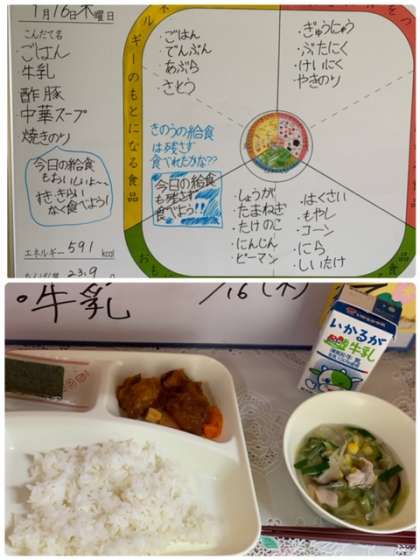 1月16日木曜日
こんだて名
ごはん
牛乳
酢豚
中華スープ
焼きのり
今日の給食
もおいしいよ〜
すききらい
なく食べよう!
エネルギー 591 kcal
23.9
エネルギーのもとになる食品
・ごはん
・でんぷん
・あぶら
・さとう
・ぎゅうにゅう
・ぶたにく
・けいにく
・やきのり
きのうの給食
は残さず
食べれたかな??
今日の給食
も残さず
食べよう!!
・しょうが
・たまねぎ
・たけのこ
・にんじん
・ピーマン
・はくさい
・もやし
・コーン
・にら
・しいたけ
牛乳
1/16(木)
いかるが
牛乳